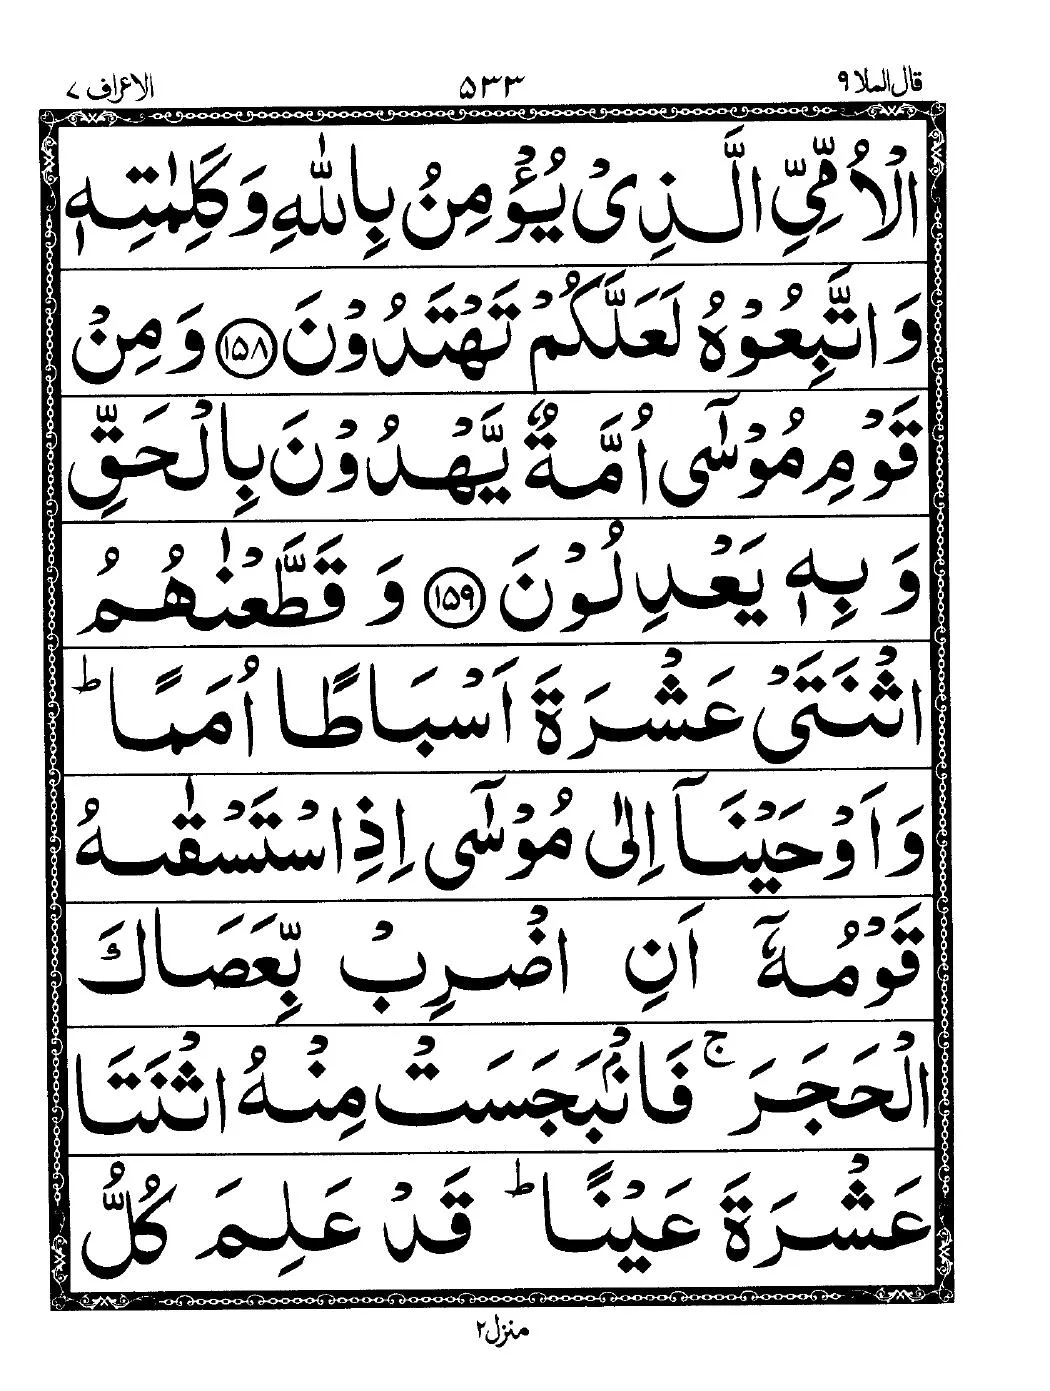 قال الملا ۹
۵۳۳
الاعراف ۷
الْاُمِّیِّ الَّذِیْ یُؤْمِنُ بِاللّٰهِ وَ كَلِمٰتِهٖ
وَ اتَّبِعُوْهُ لَعَلَّكُمْ تَهْتَدُوْنَ ۱۵۸ وَ مِنْ
قَوْمِ مُوْسٰۤی اُمَّةٌ یَّهْدُوْنَ بِالْحَقِّ
وَ بِهٖ یَعْدِلُوْنَ ۱۵۹ وَ قَطَّعْنٰهُمُ
اثْنَتَیْ عَشْرَةَ اَسْبَاطًا اُمَمًا ؕ
وَ اَوْحَیْنَاۤ اِلٰی مُوْسٰۤی اِذِ اسْتَسْقٰىهُ
قَوْمُهٗۤ اَنِ اضْرِبْ بِّعَصَاكَ
الْحَجَرَ ۚ فَانْۢبَجَسَتْ مِنْهُ اثْنَتَا
عَشْرَةَ عَیْنًا ؕ قَدْ عَلِمَ كُلُّ
منزل ۲